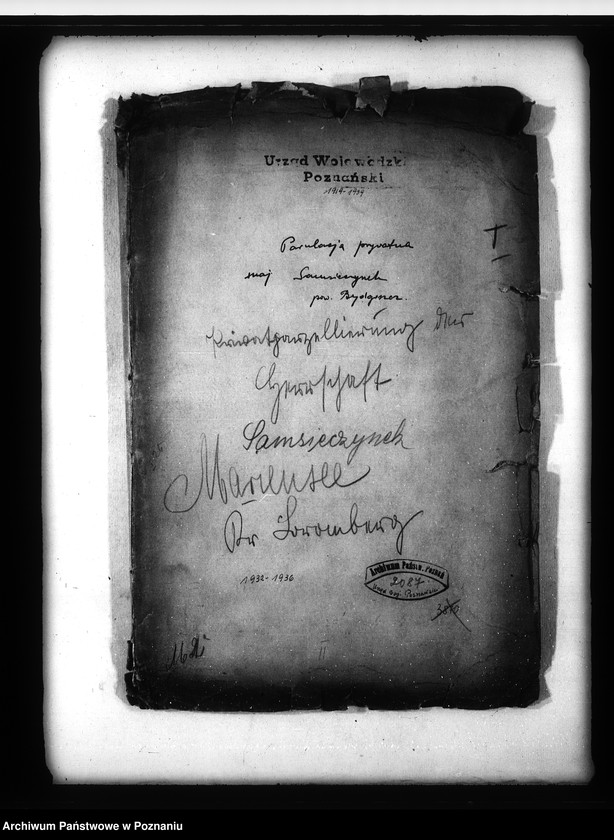 Urząd Wojewódzki
Poznański
1919-1939
Parcelacja prywatna
maj Samsieczynek
pow. Bydgoszcz.
Privatparzellierung der
Herrschaft
Samsieczynek
Mariensee
Kr. Bromberg
1932-1936
Archiwum Państw. Poznań
2087
Urząd Woj. Poznański
II
Archiwum Państwowe w Poznaniu